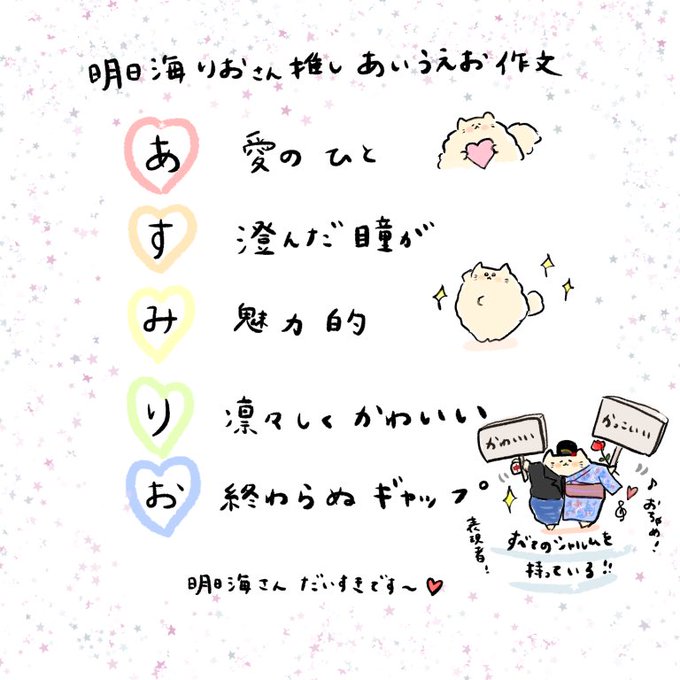 明日海りおさん推しあいうえお作文
あ 愛のひと
す 澄んだ瞳が
み 魅力的
り 凛々しくかわいい
お 終わらぬギャップ
かわいい
かっこいい
表現者!
♪おちゃめ!
すべてのシャルムを
持っている!!
明日海さん だいすきです〜♥